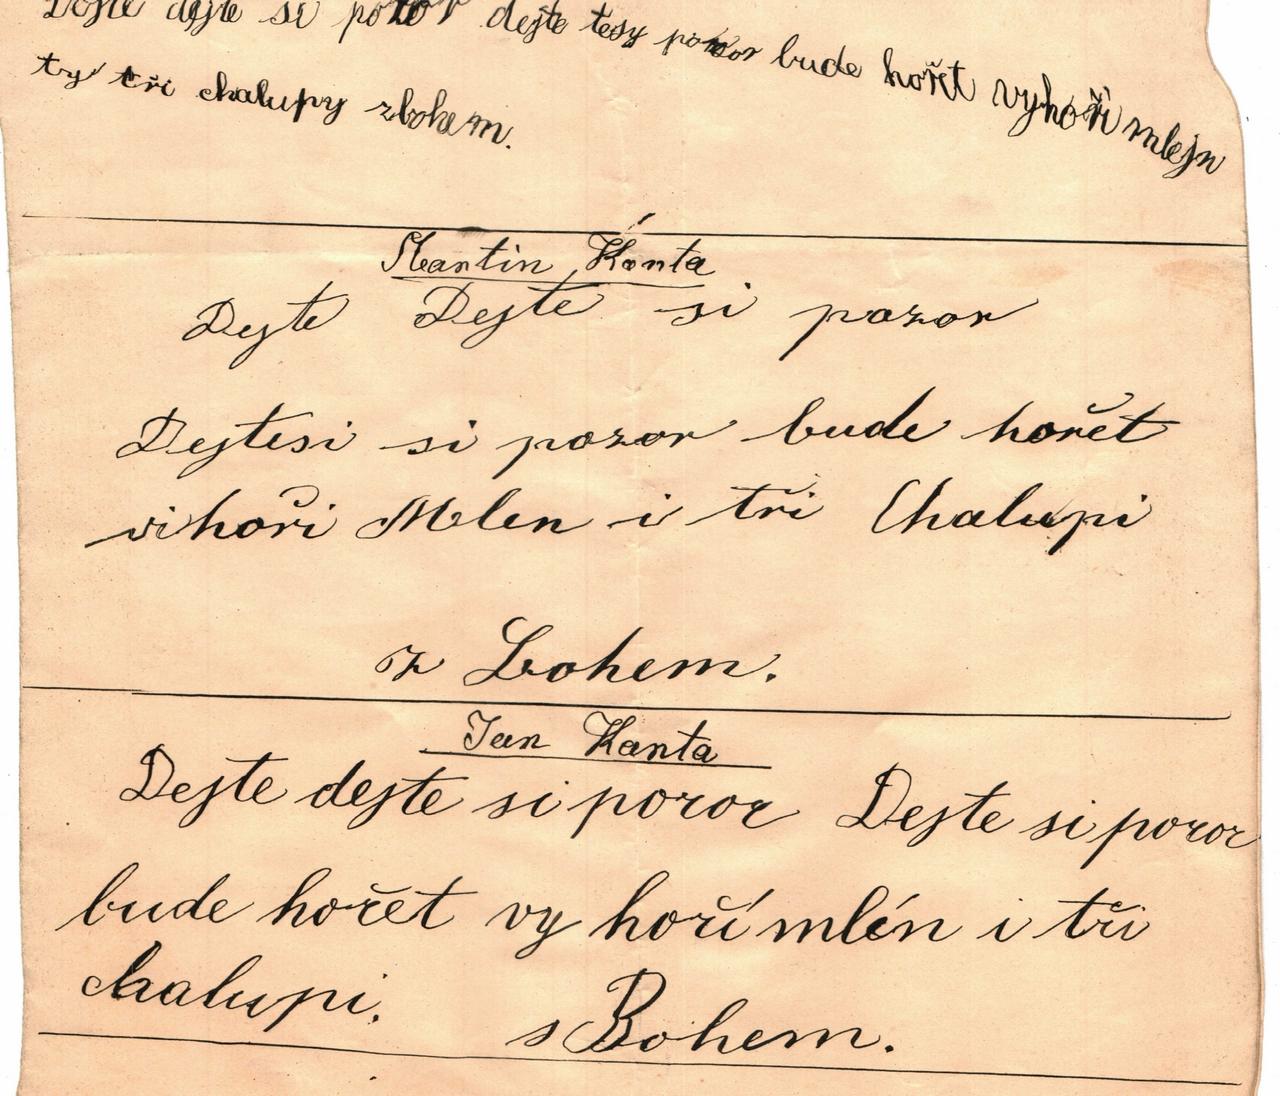 Dejte dejte si pozor dejte tesy pozor bude hořet vyhoří mlejn
ty tři chalupy zbohem.
Martin Kanta
Dejte Dejte si pozor
Dejtesi si pozor bude hořet
vihoři Mlen i tři Chalupi
z Bohem.
Jan Kanta
Dejte dejte si pozor Dejte si pozor
bude hořet vy hoří mlén i tři
chalupi.
s Bohem.